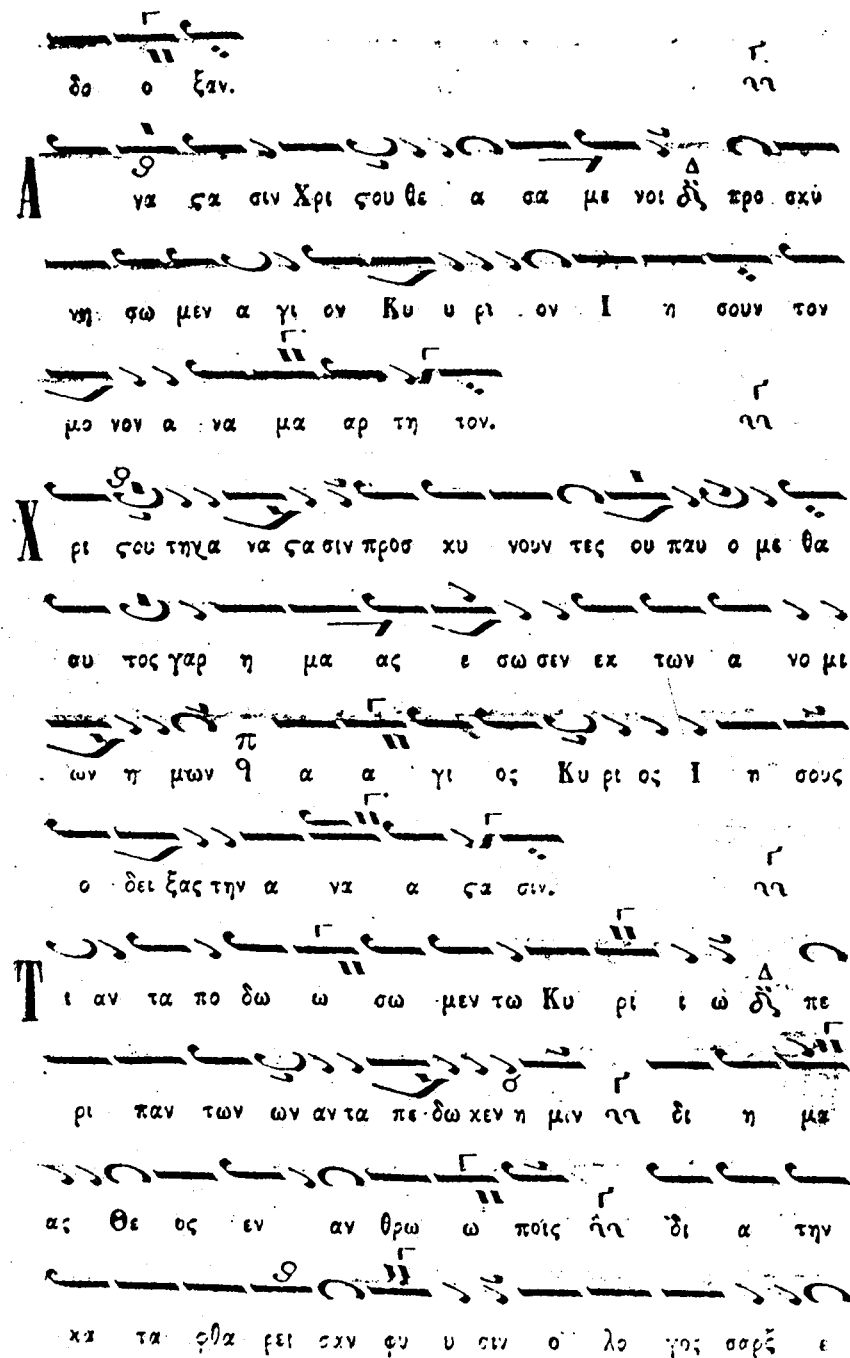 δο ο ξαν.
Α να ϛα σιν Χρι ϛου θε α σα με νοι προ σκυ
νη σω μεν α γι ον Κυ υ ρι ον Ι η σουν τον
μο νον α να μα αρ τη τον.
Χ ρι ϛου την α να ϛα σιν προσ κυ νουν τες ου παυ ο με θα
αυ τος γαρ η μα ας ε σω σεν εκ των α νο μι
ων η μων α α γι ος Κυ ρι ος Ι η σους
ο δει ξας την α να α ϛα σιν.
Τ ι αν τα πο δω ω σω μεν τω Κυ ρι ι ω πε
ρι παν των ων αν τα πε δω κεν η μιν δι η μα
ας Θε ος εν αν θρω ω ποις δι α την
κα τα φθα ρει σαν φυ υ σιν ο λο γος σαρξ ε